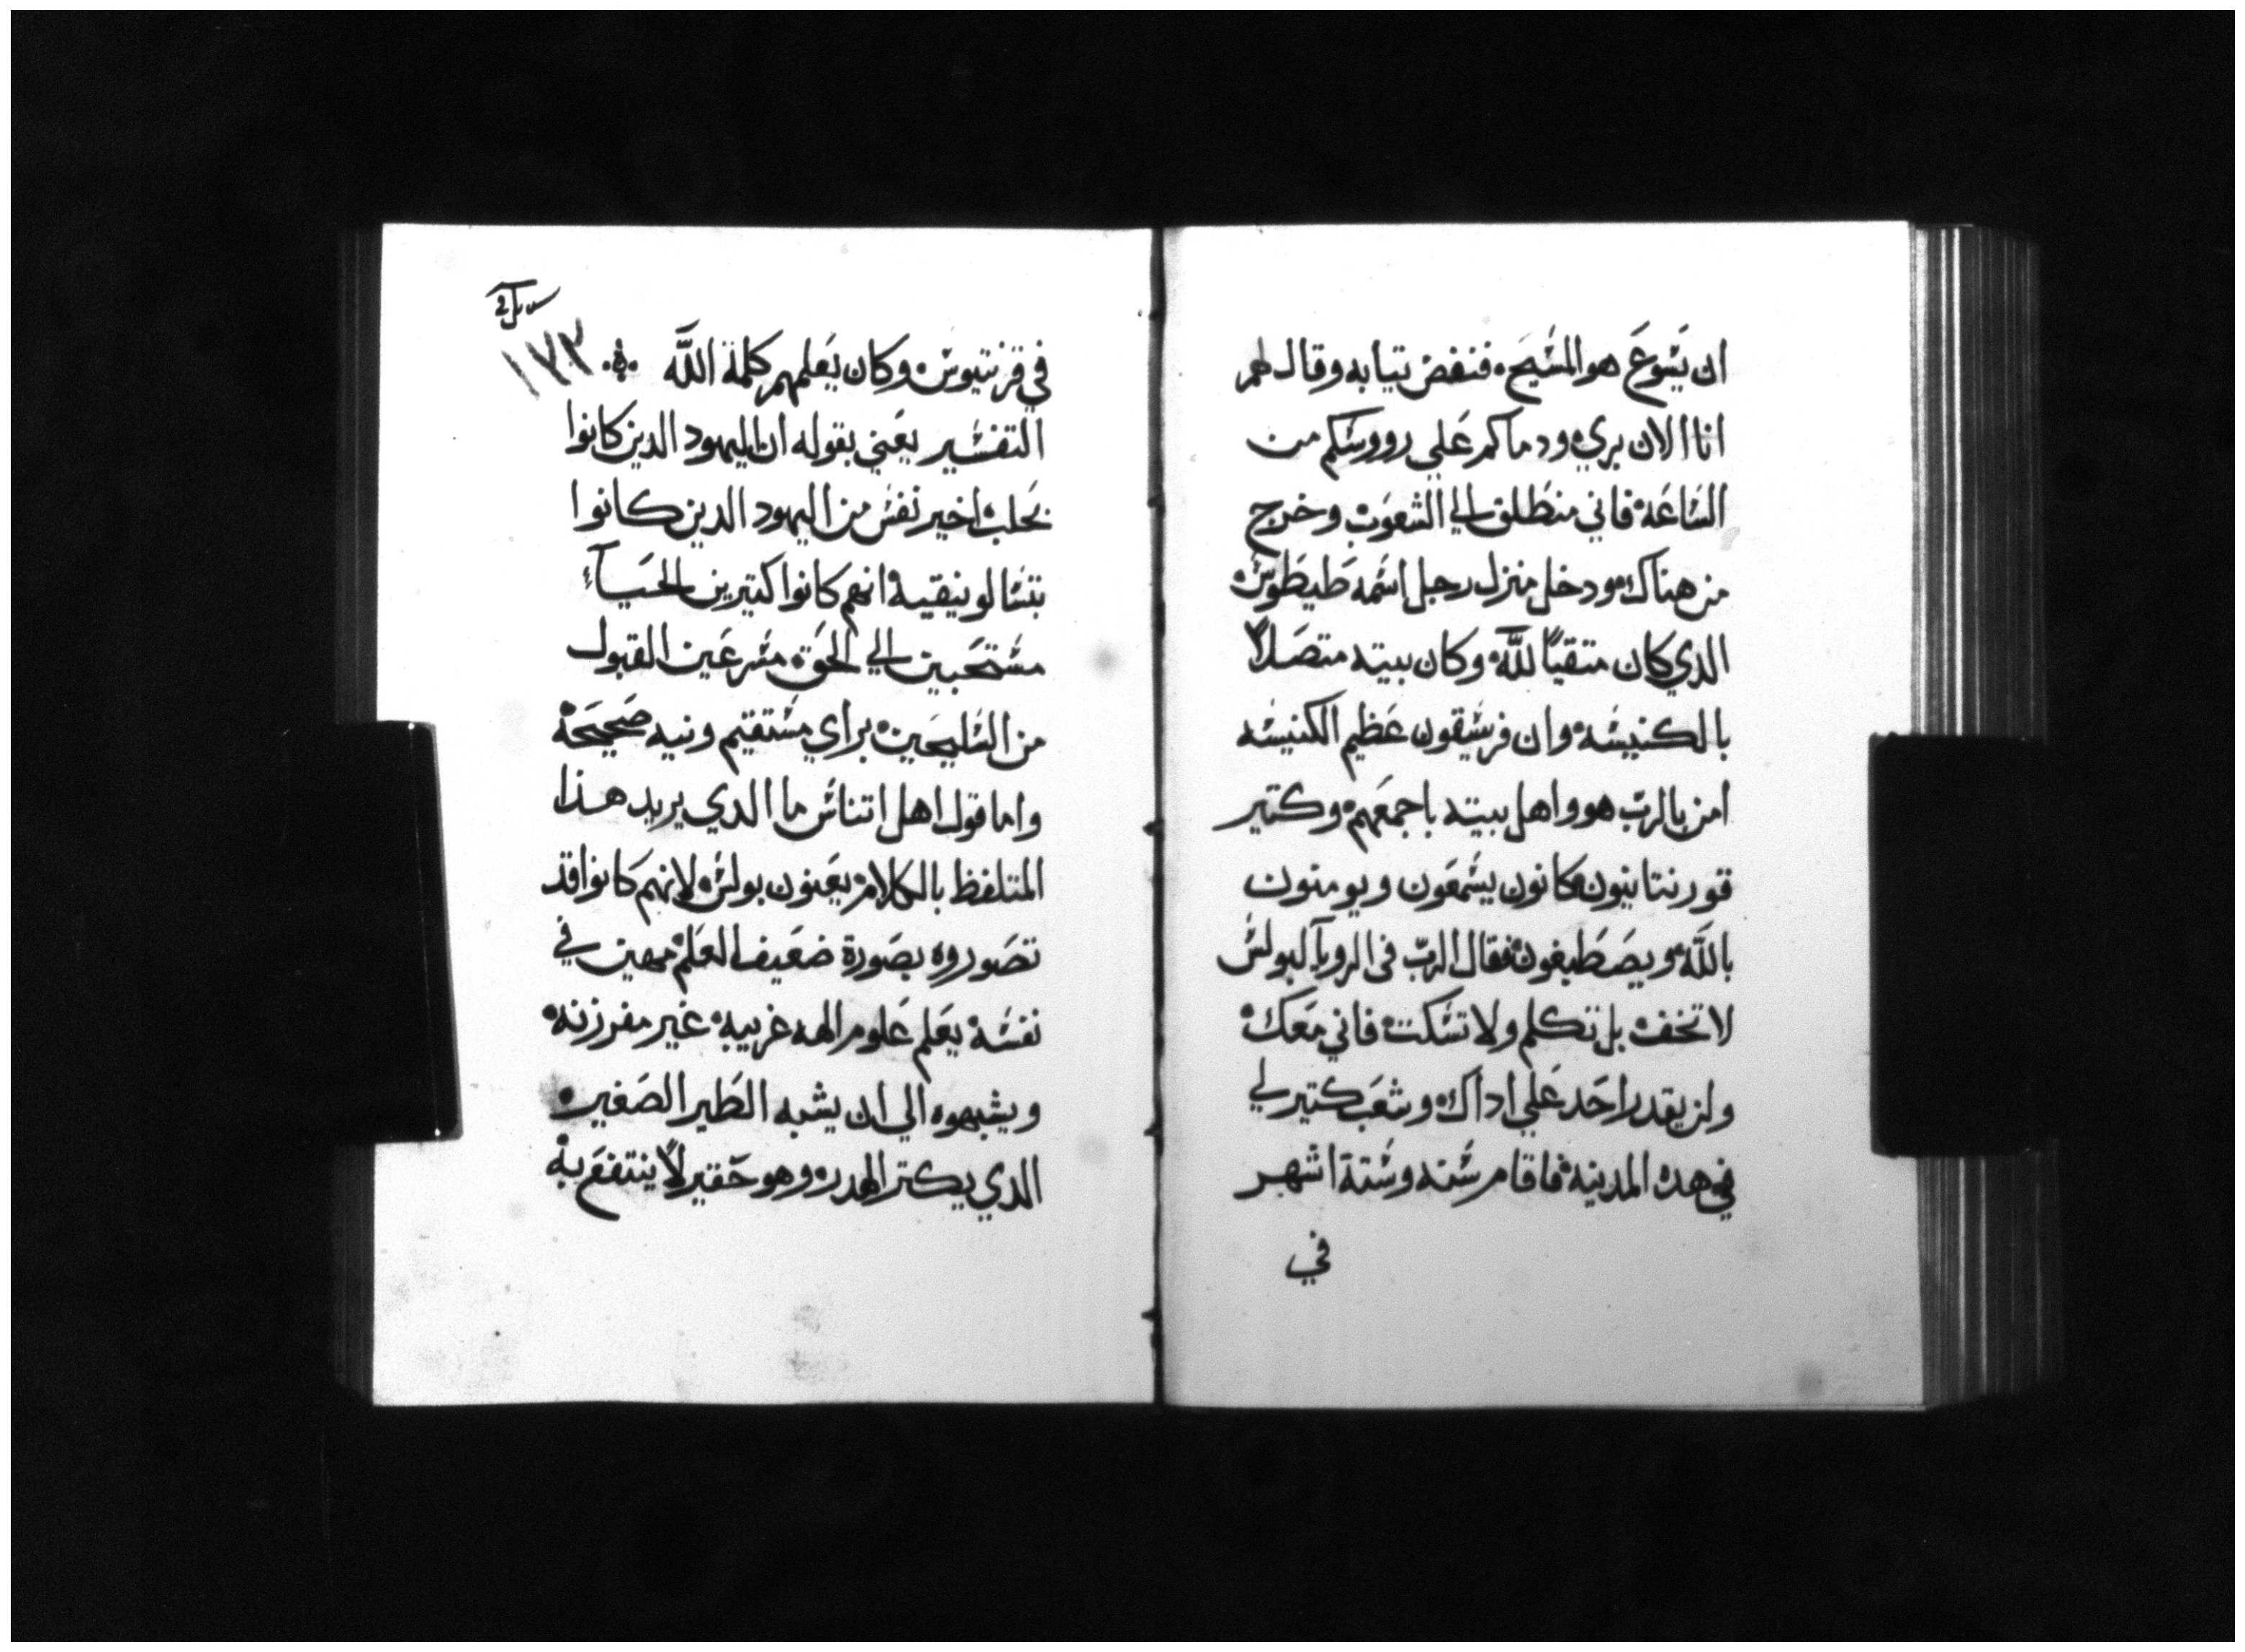 ان يَسُوعَ هو المسَيحَ فنفض تيابه وقال لهم
انا الان بري ودماكم عَلي رووسَكم من
السَاعَة فاني منطَلق الي الشعوَب وخرج
من هناك ودخل منزل رجل اسَمه طَيطَوسَ
الدي كان متقياً للَّه وكان بيته متصَلاً
بالكنيسَه وان فرسَيقون عَظيم الكنيسَه
امن بالربّ هو واهل بيته باجمعَهم وكتير
قورنتانيون كانون يسَمعَون ويومنون
باللَّه ويصَطَبغون فقال الربّ في الرويآ لبولسَ
لا تخف بل تكلم ولا تسَكت فاني معَك
ولن يقدر احَد عَلي اداك وشعَب كتير لي
في هده المدينة فاقام سَنه وسَتة اشهر
في
١٧٣
في قرنتيوسَ وكان يَعَلمهم كلمة اللَّه
التفسَير يعَني بقوله ان اليهود الدين كانوا
بحَلب اخير نفسَ من اليهود الدين كانوا
بتسَالونيقية انهم كانوا كتيرين الحَيآء
مسَتحَبين الي الحَق مسَرعَين القبول
من السَليحَين براي مسَتقيم ونيه صَحيحَة
واما قول اهل اتناسَ ما الدي يريد هذا
المتلفظ بالكلام يعَنون بولسَ لانهم كانوا قد
تصَوروه بصَورة ضعَيف العَلم مهين في
نفسَه يعَلم عَلوم الهه غريبه غير مفرزنه
ويشبهوه الي ان يشبه الطَير الصَغير
الدي يكتر الهدره وهو حَقير لا ينتفعَ به